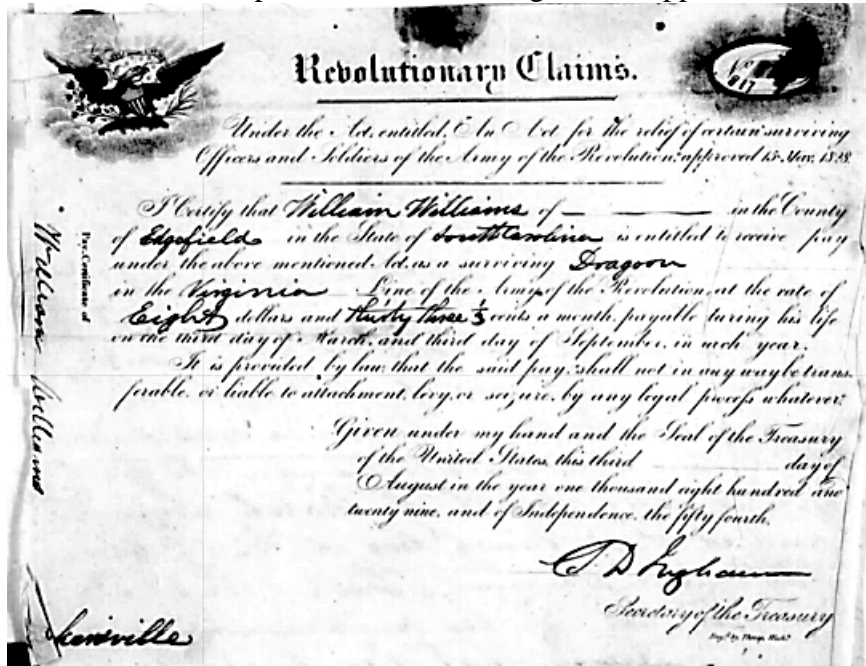 Revolutionary Claims.
No
817
Under the Act, entitled, "An Act for the relief of certain surviving
Officers and Soldiers of the Army of the Revolution," approved 15 May, 1828
I Certify that William Williams of in the County
of Edgefield in the State of South Carolina is entitled to receive pay
under the above mentioned Act, as a surviving Dragoon
in the Virginia Line of the Army of the Revolution, at the rate of
Eight dollars and thirty three 1/3 cents a month, payable during his life
on the third day of March, and third day of September, in each year.
It is provided by law, that the said pay, shall not in any way be trans-
ferable, or liable to attachment, levy, or seizure, by any legal process whatever:
Given under my hand and the Seal of the Treasury
of the United States, this third day of
August in the year one thousand eight hundred and
twenty nine, and of Independence, the fifty fourth.
S. D. Ingham
Secretary of the Treasury
Pay-Certificate of
William Williams